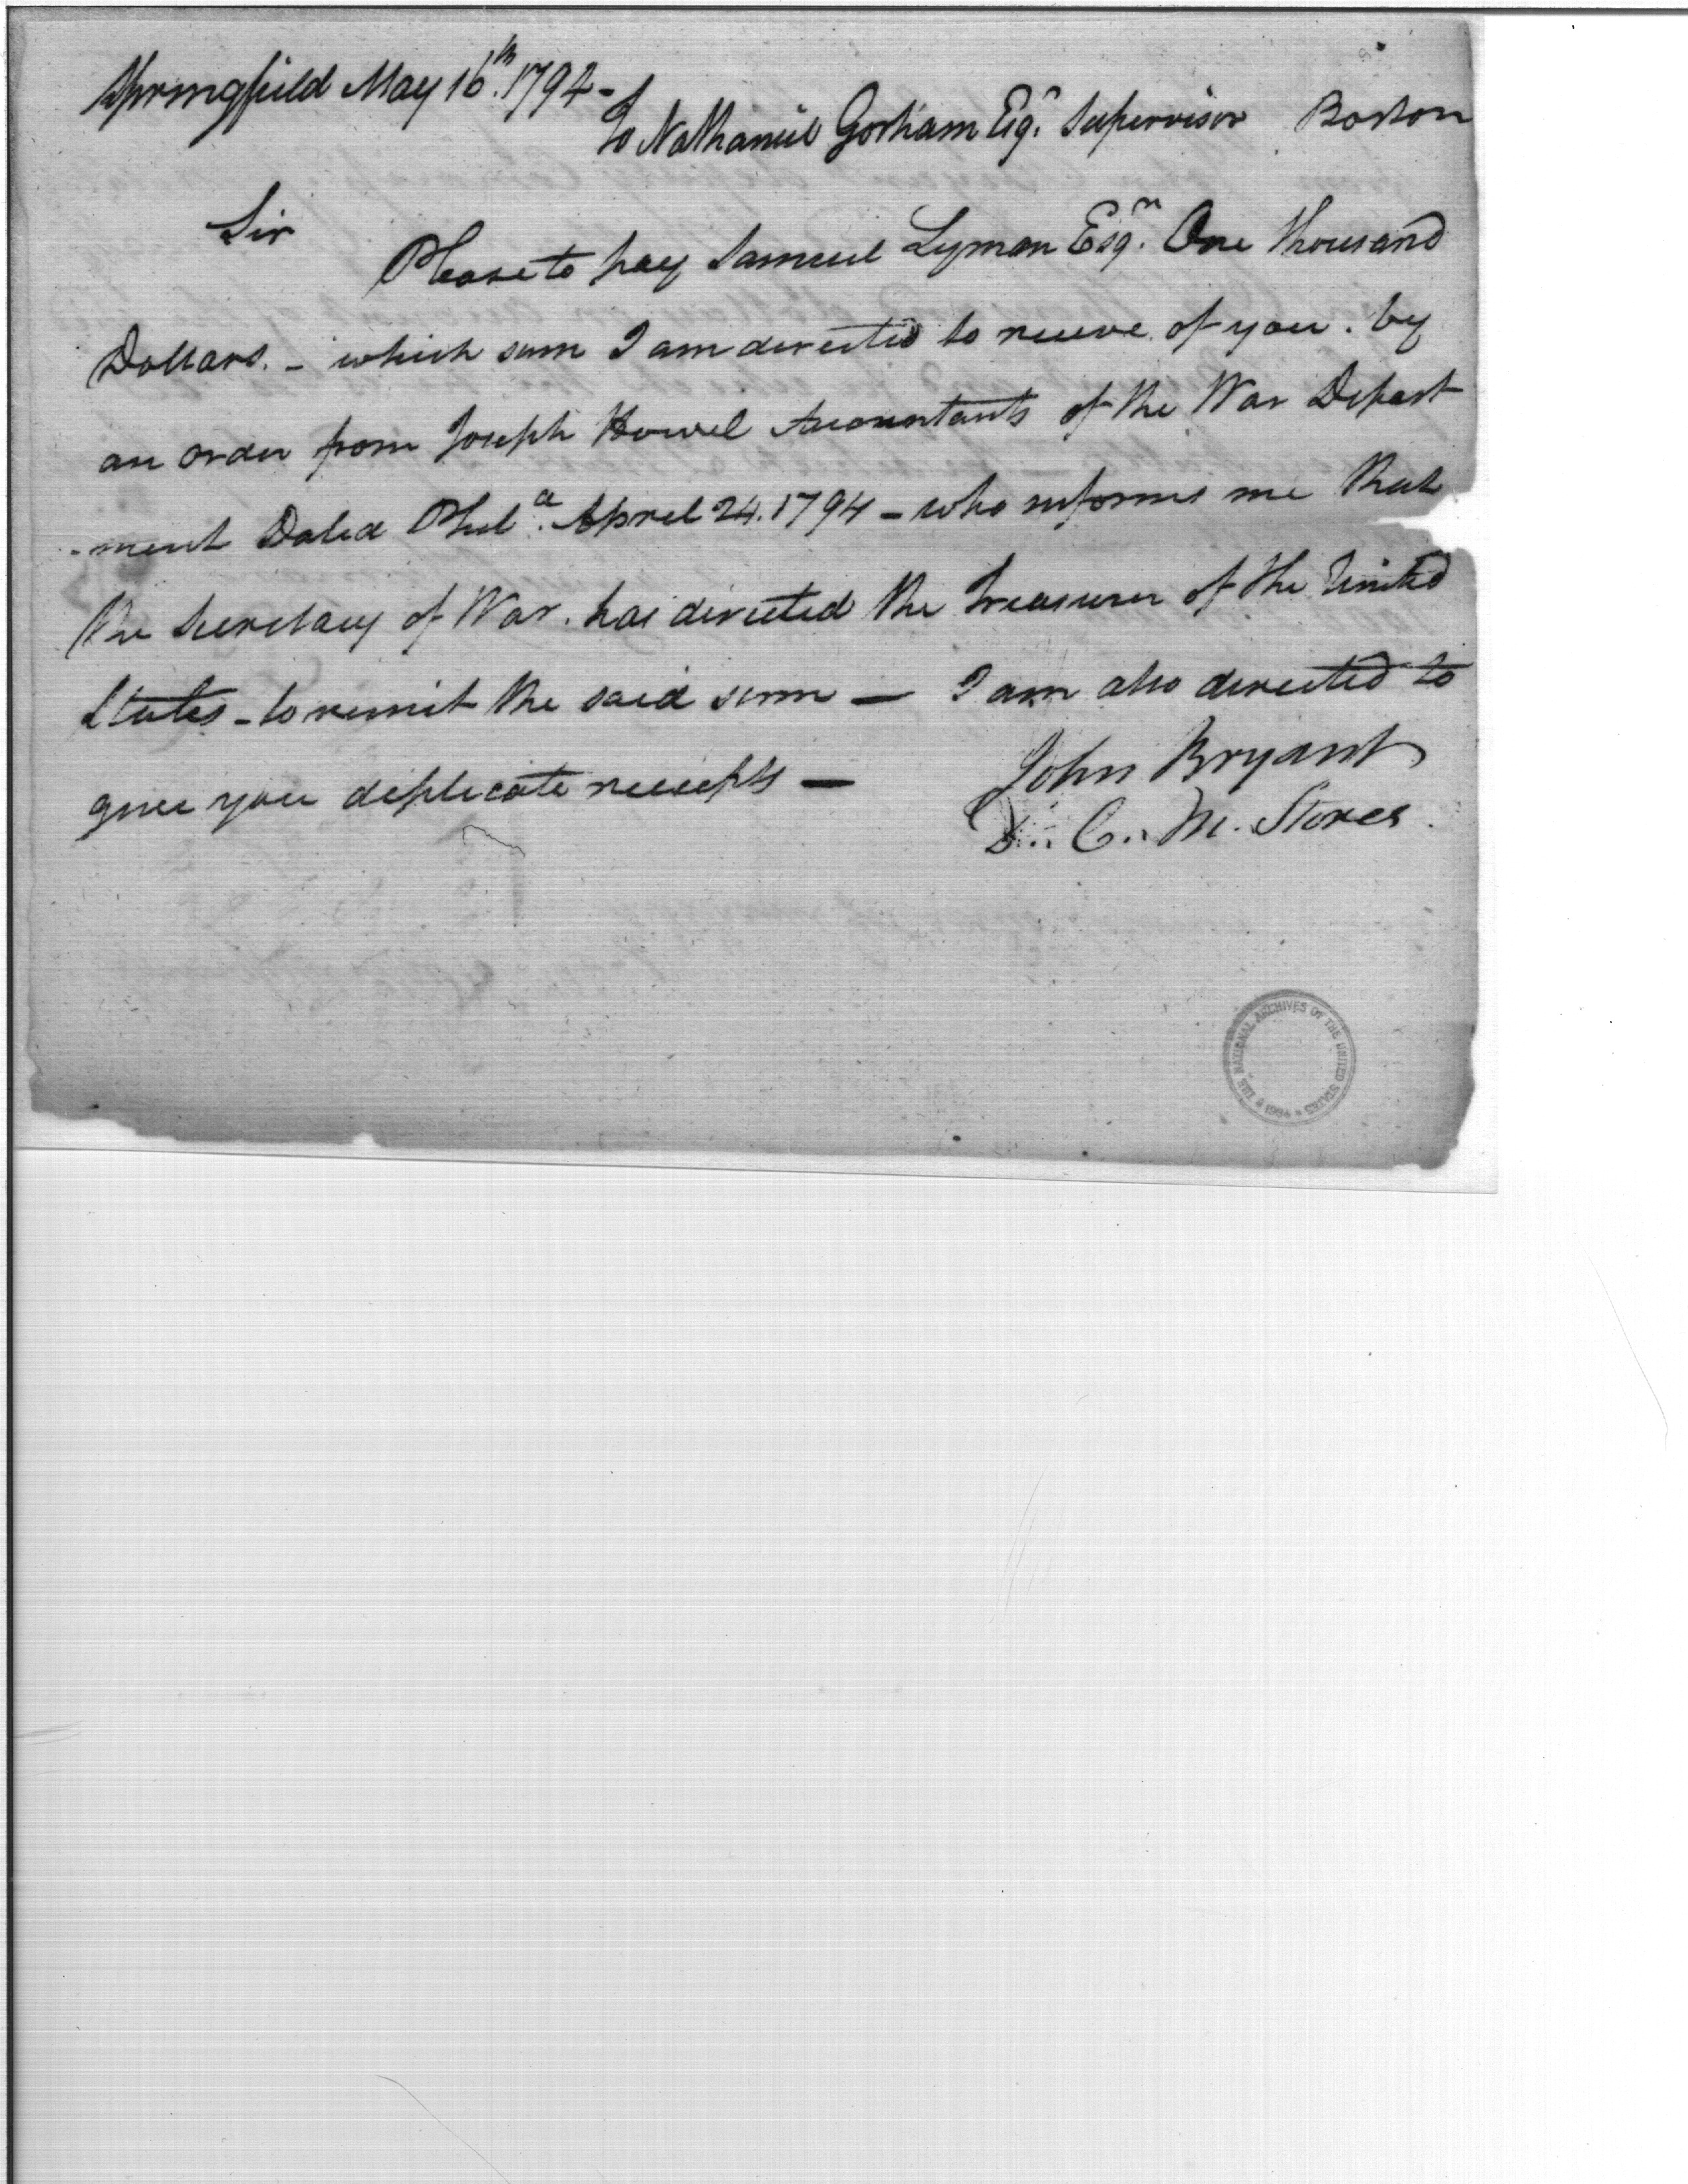 Springfield May 16th. 1794 -
To Nathaniel Gorham Esqr. Supervisor Boston
Sir
Please to pay Samuel Lyman Esqr. One Thousand
Dollars. - which sum I am directed to receive of you. by
an order from Joseph Howel Accountants of the War Depart
-ment Dated Phila. April 24. 1794 - who informs me that
the Secretary of War. has directed the Treasurer of the United
States - to remit the said sum — I am also directed to
give you duplicate receipts —
John Bryant
D.. C.. M. Stores
THE NATIONAL ARCHIVES OF THE UNITED STATES * 1934 *